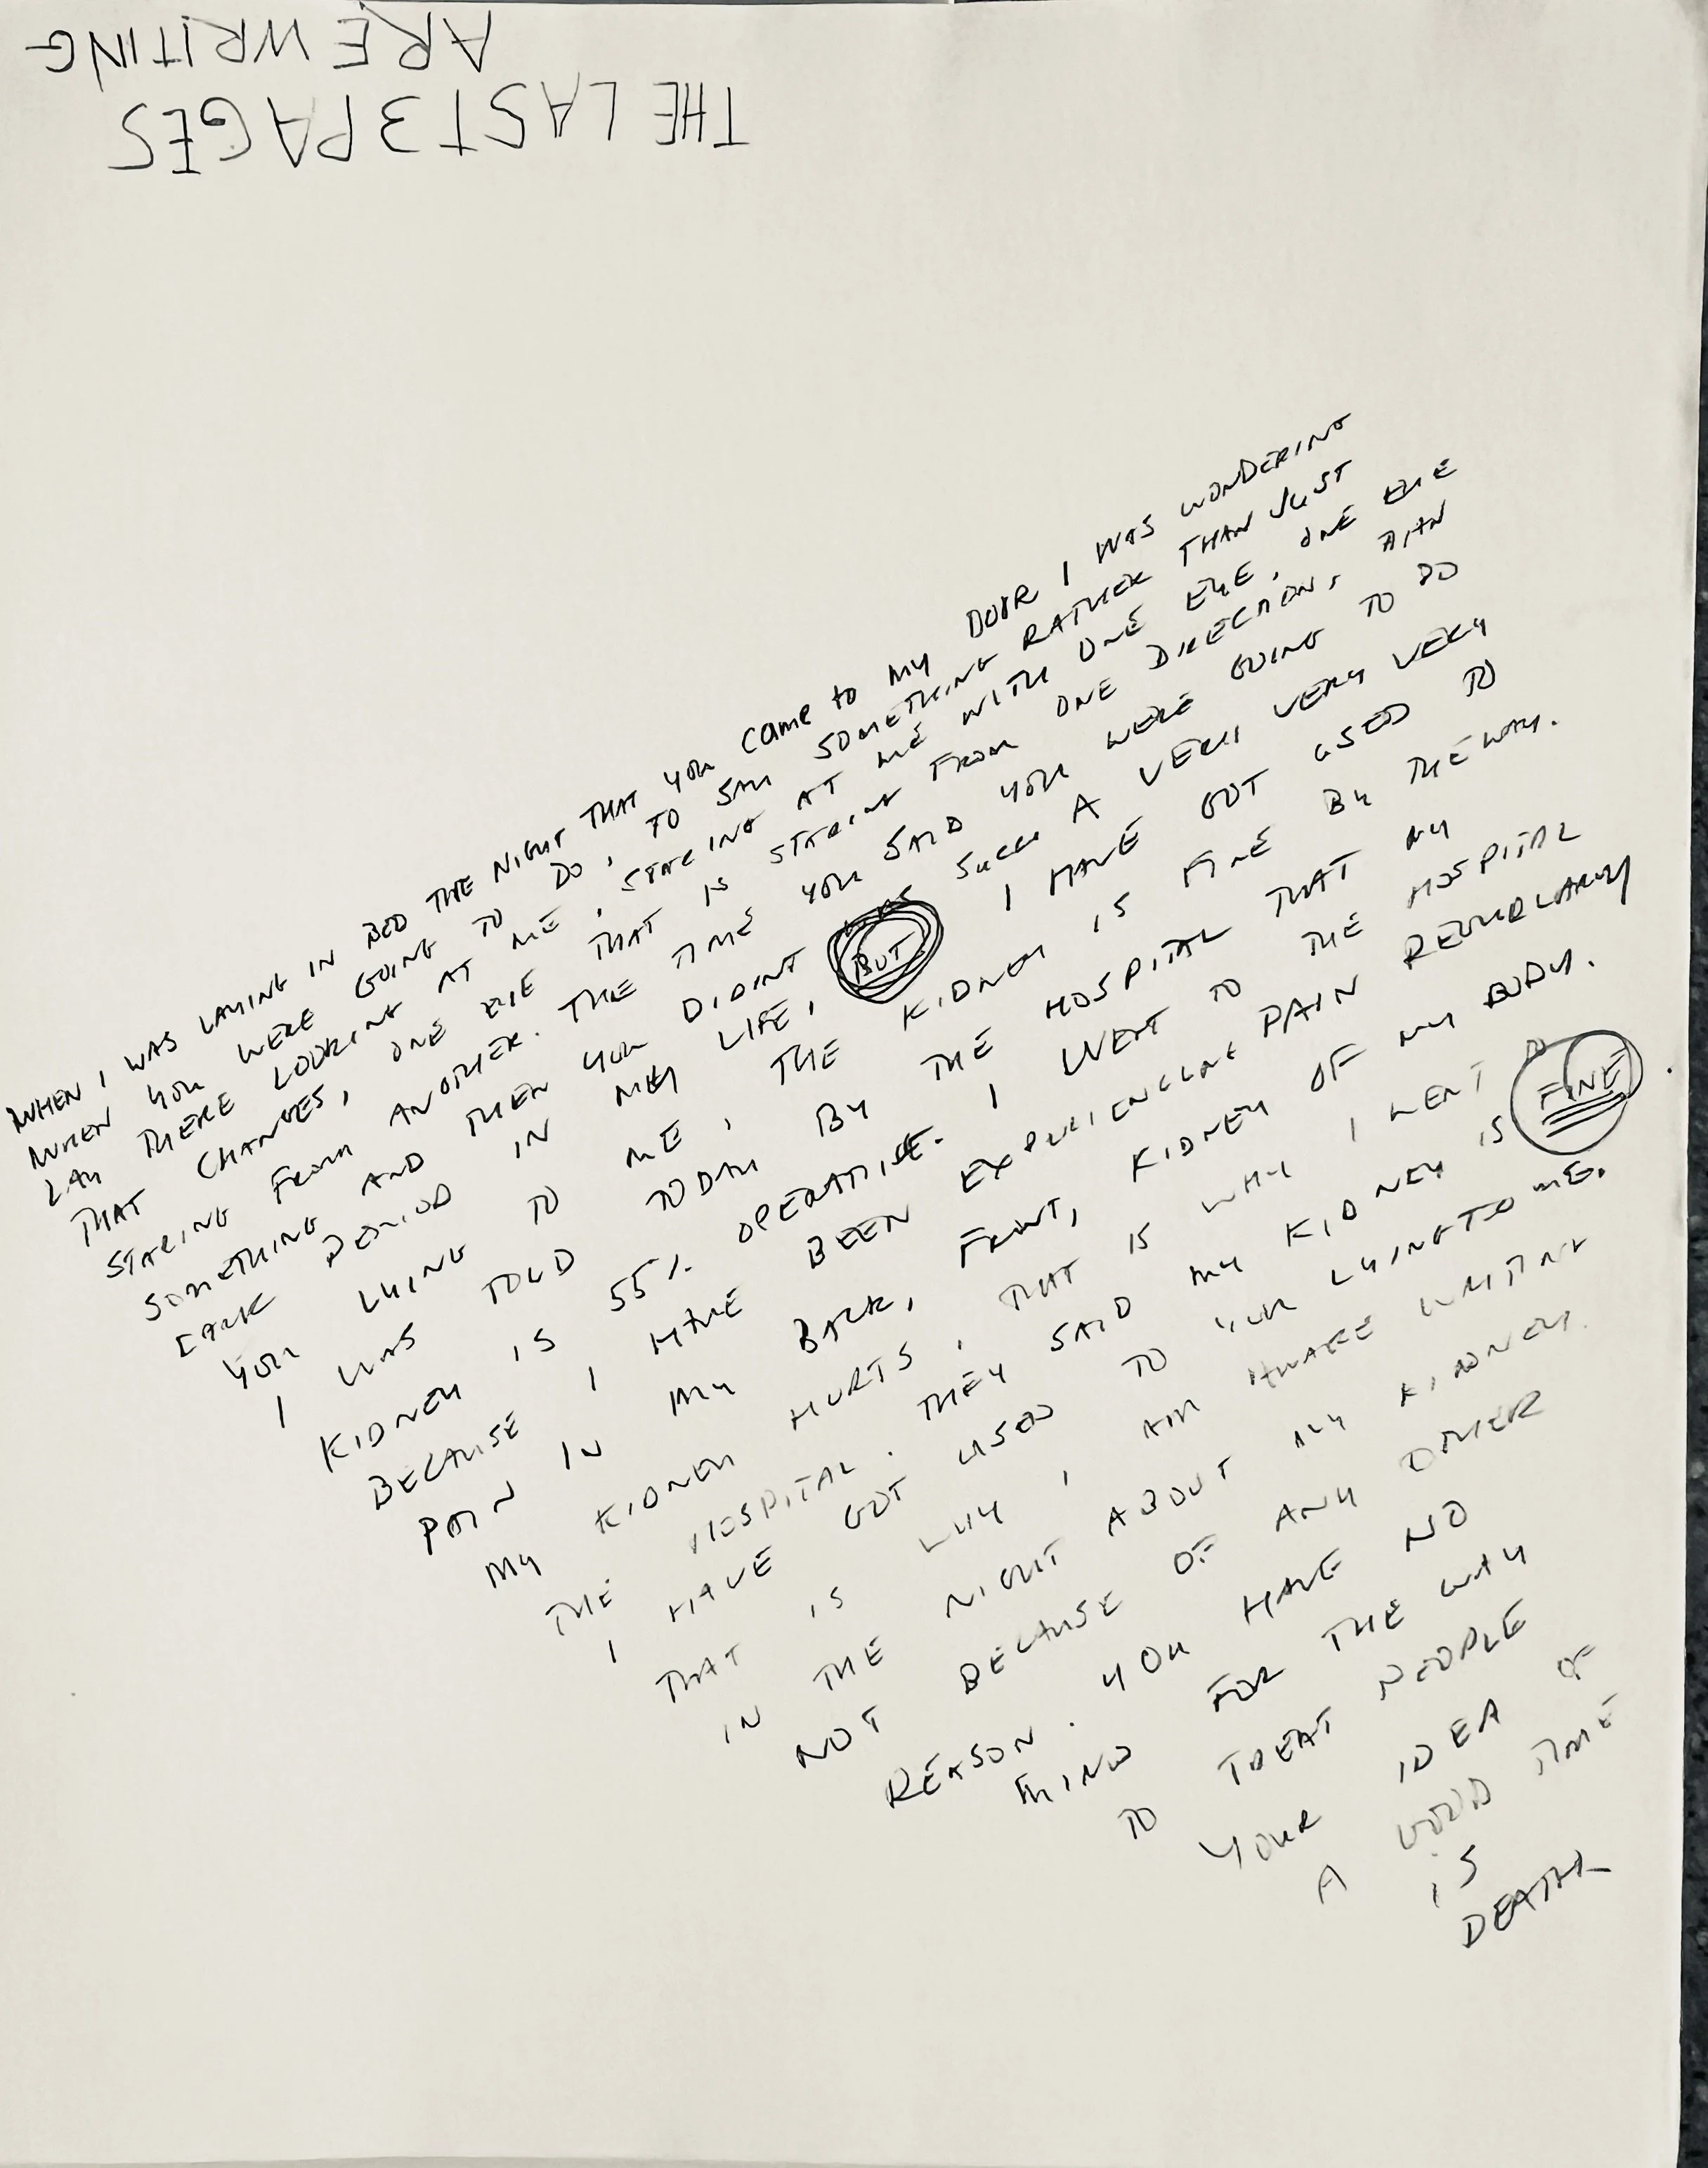 THE LAST 3 PAGES
ARE WRITING
WHEN I WAS LAYING IN BED THE NIGHT THAT YOU came to MY DOOR I WAS WONDERING
WHEN YOU WERE GOING TO DO, TO SAY SOMETHING RATHER THAN JUST
LAY THERE LOOKING AT ME, STARING AT ME WITH ONE EYE, ONE EYE
THAT CHANGES, ONE EYE THAT IS STARING FROM ONE DIRECTION,
STARING FROM ANOTHER. THE TIMES YOU SAID YOU WERE GOING TO DO
SOMETHING AND THEN YOU DIDINT SUCH A VERY VERY VERY
DARK PERIOD IN MY LIFE, BUT I HAVE GOT USED TO
YOU LYING TO ME, THE KIDNEY IS FINE BY THE WAY.
I WAS TOLD TODAY BY THE HOSPITAL THAT MY
KIDNEY IS 55% OPERATIVE. I WENT TO THE HOSPITAL
BECAUSE I HAVE BEEN EXPERIENCING PAIN REGULARLY
PAIN IN MY BACK, FRONT, KIDNEY OF MY BODY.
MY KIDNEY HURTS, THAT IS WHY I WENT TO
THE HOSPITAL. THEY SAID MY KIDNEY IS FINE.
I HAVE GOT USED TO YOUR LYING TO ME.
THAT IS WHY I AM AWAKE WRITING
IN THE NIGHT ABOUT MY KIDNEY.
NOT BECAUSE OF ANY OTHER
REASON. YOU HAVE NO
MIND FOR THE WAY
TO TREAT PEOPLE
YOUR IDEA OF
A GOOD TIME
IS
DEATH